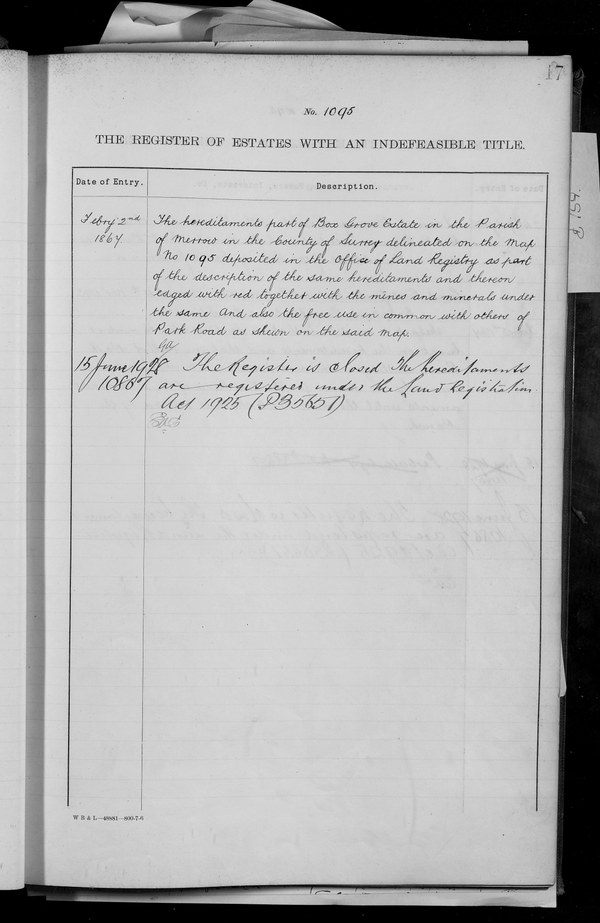 17
No. 1095
THE REGISTER OF ESTATES WITH AN INDEFEASIBLE TITLE.
Date of Entry.
Description.
Febry 2nd
1867
The hereditaments part of Box Grove Estate in the Parish
of Merrow in the County of Surrey delineated on the Map
No 1095 deposited in the Office of Land Registry as part
of the description of the same hereditaments and thereon
edged with red together with the mines and minerals under
the same And also the free use in common with others of
Park Road as shewn on the said Map.
15 June 1928
10867
The Register is closed The hereditaments
are registered under the Land Registration
Act 1925 (P35651)
W B & L—48881—800-7-6
154.